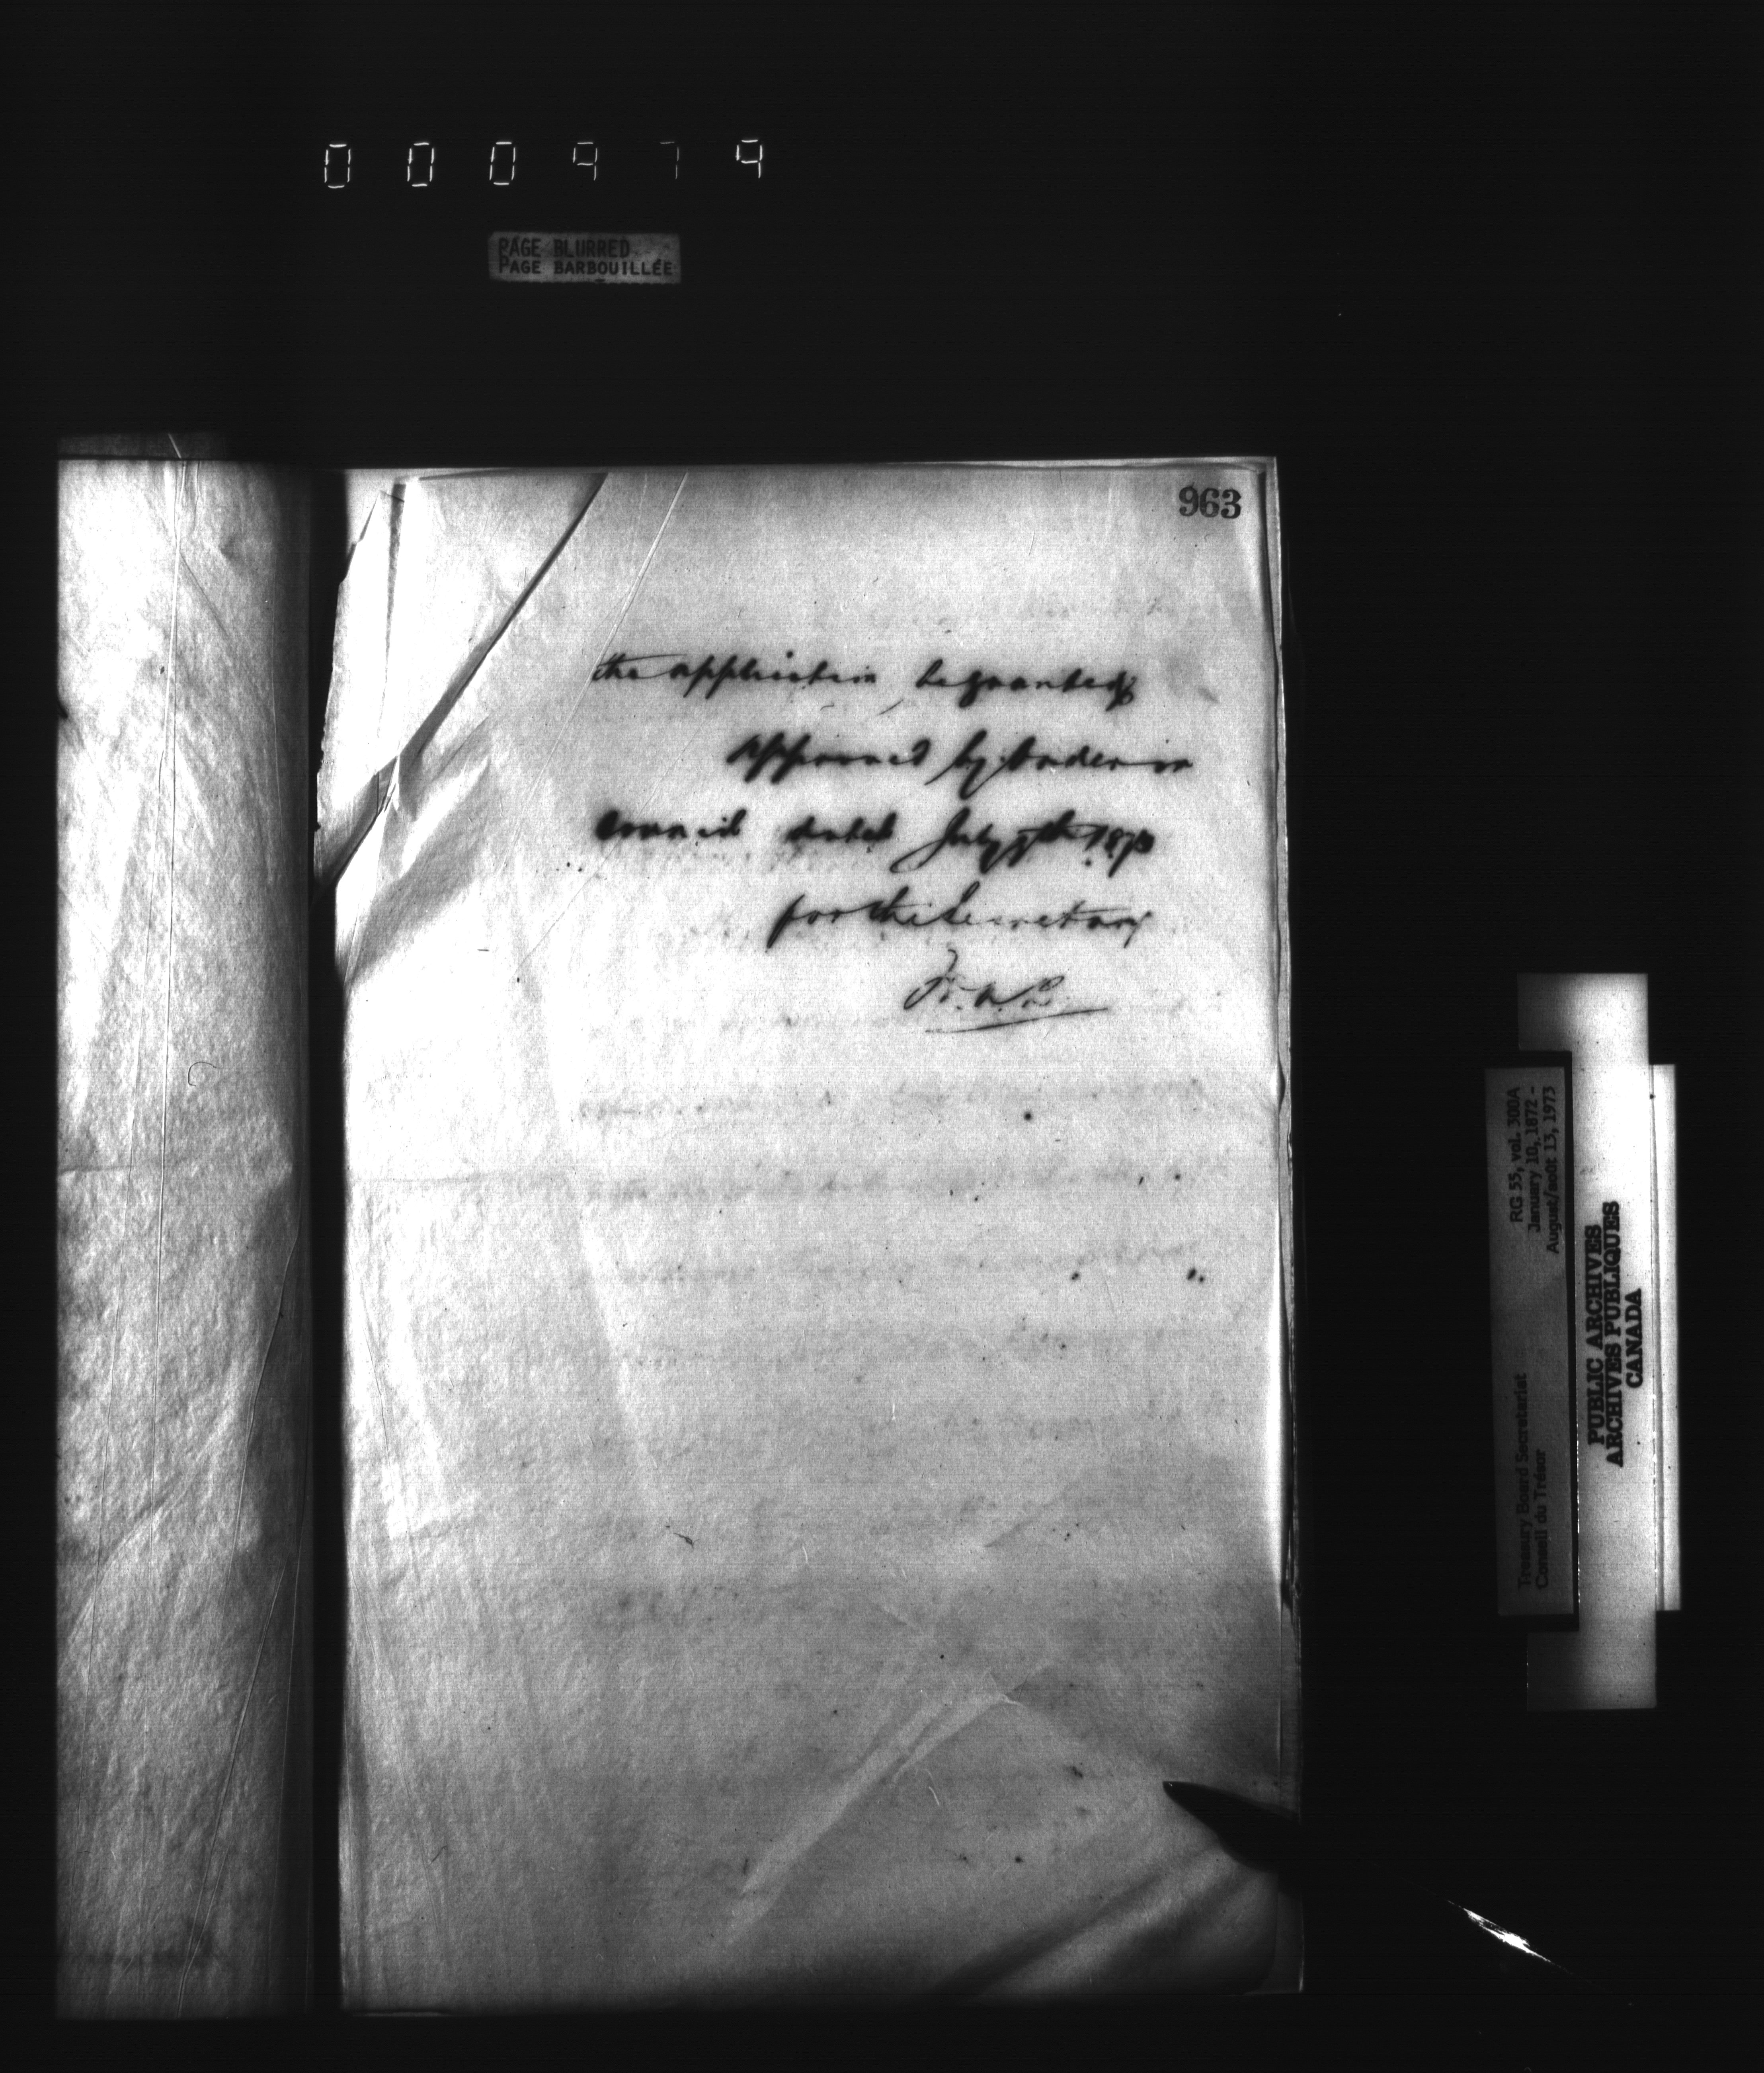 000979
PAGE BLURRED
PAGE BARBOUILLÉE
963
the application be granted
Approved by Order in
Council dated July 7th 1873
for the Secretary
RG 55, vol. 300A
January 10, 1872 -
August/août 13, 1973
Treasury Board Secretariat
Conseil du Trésor
PUBLIC ARCHIVES
ARCHIVES PUBLIQUES
CANADA